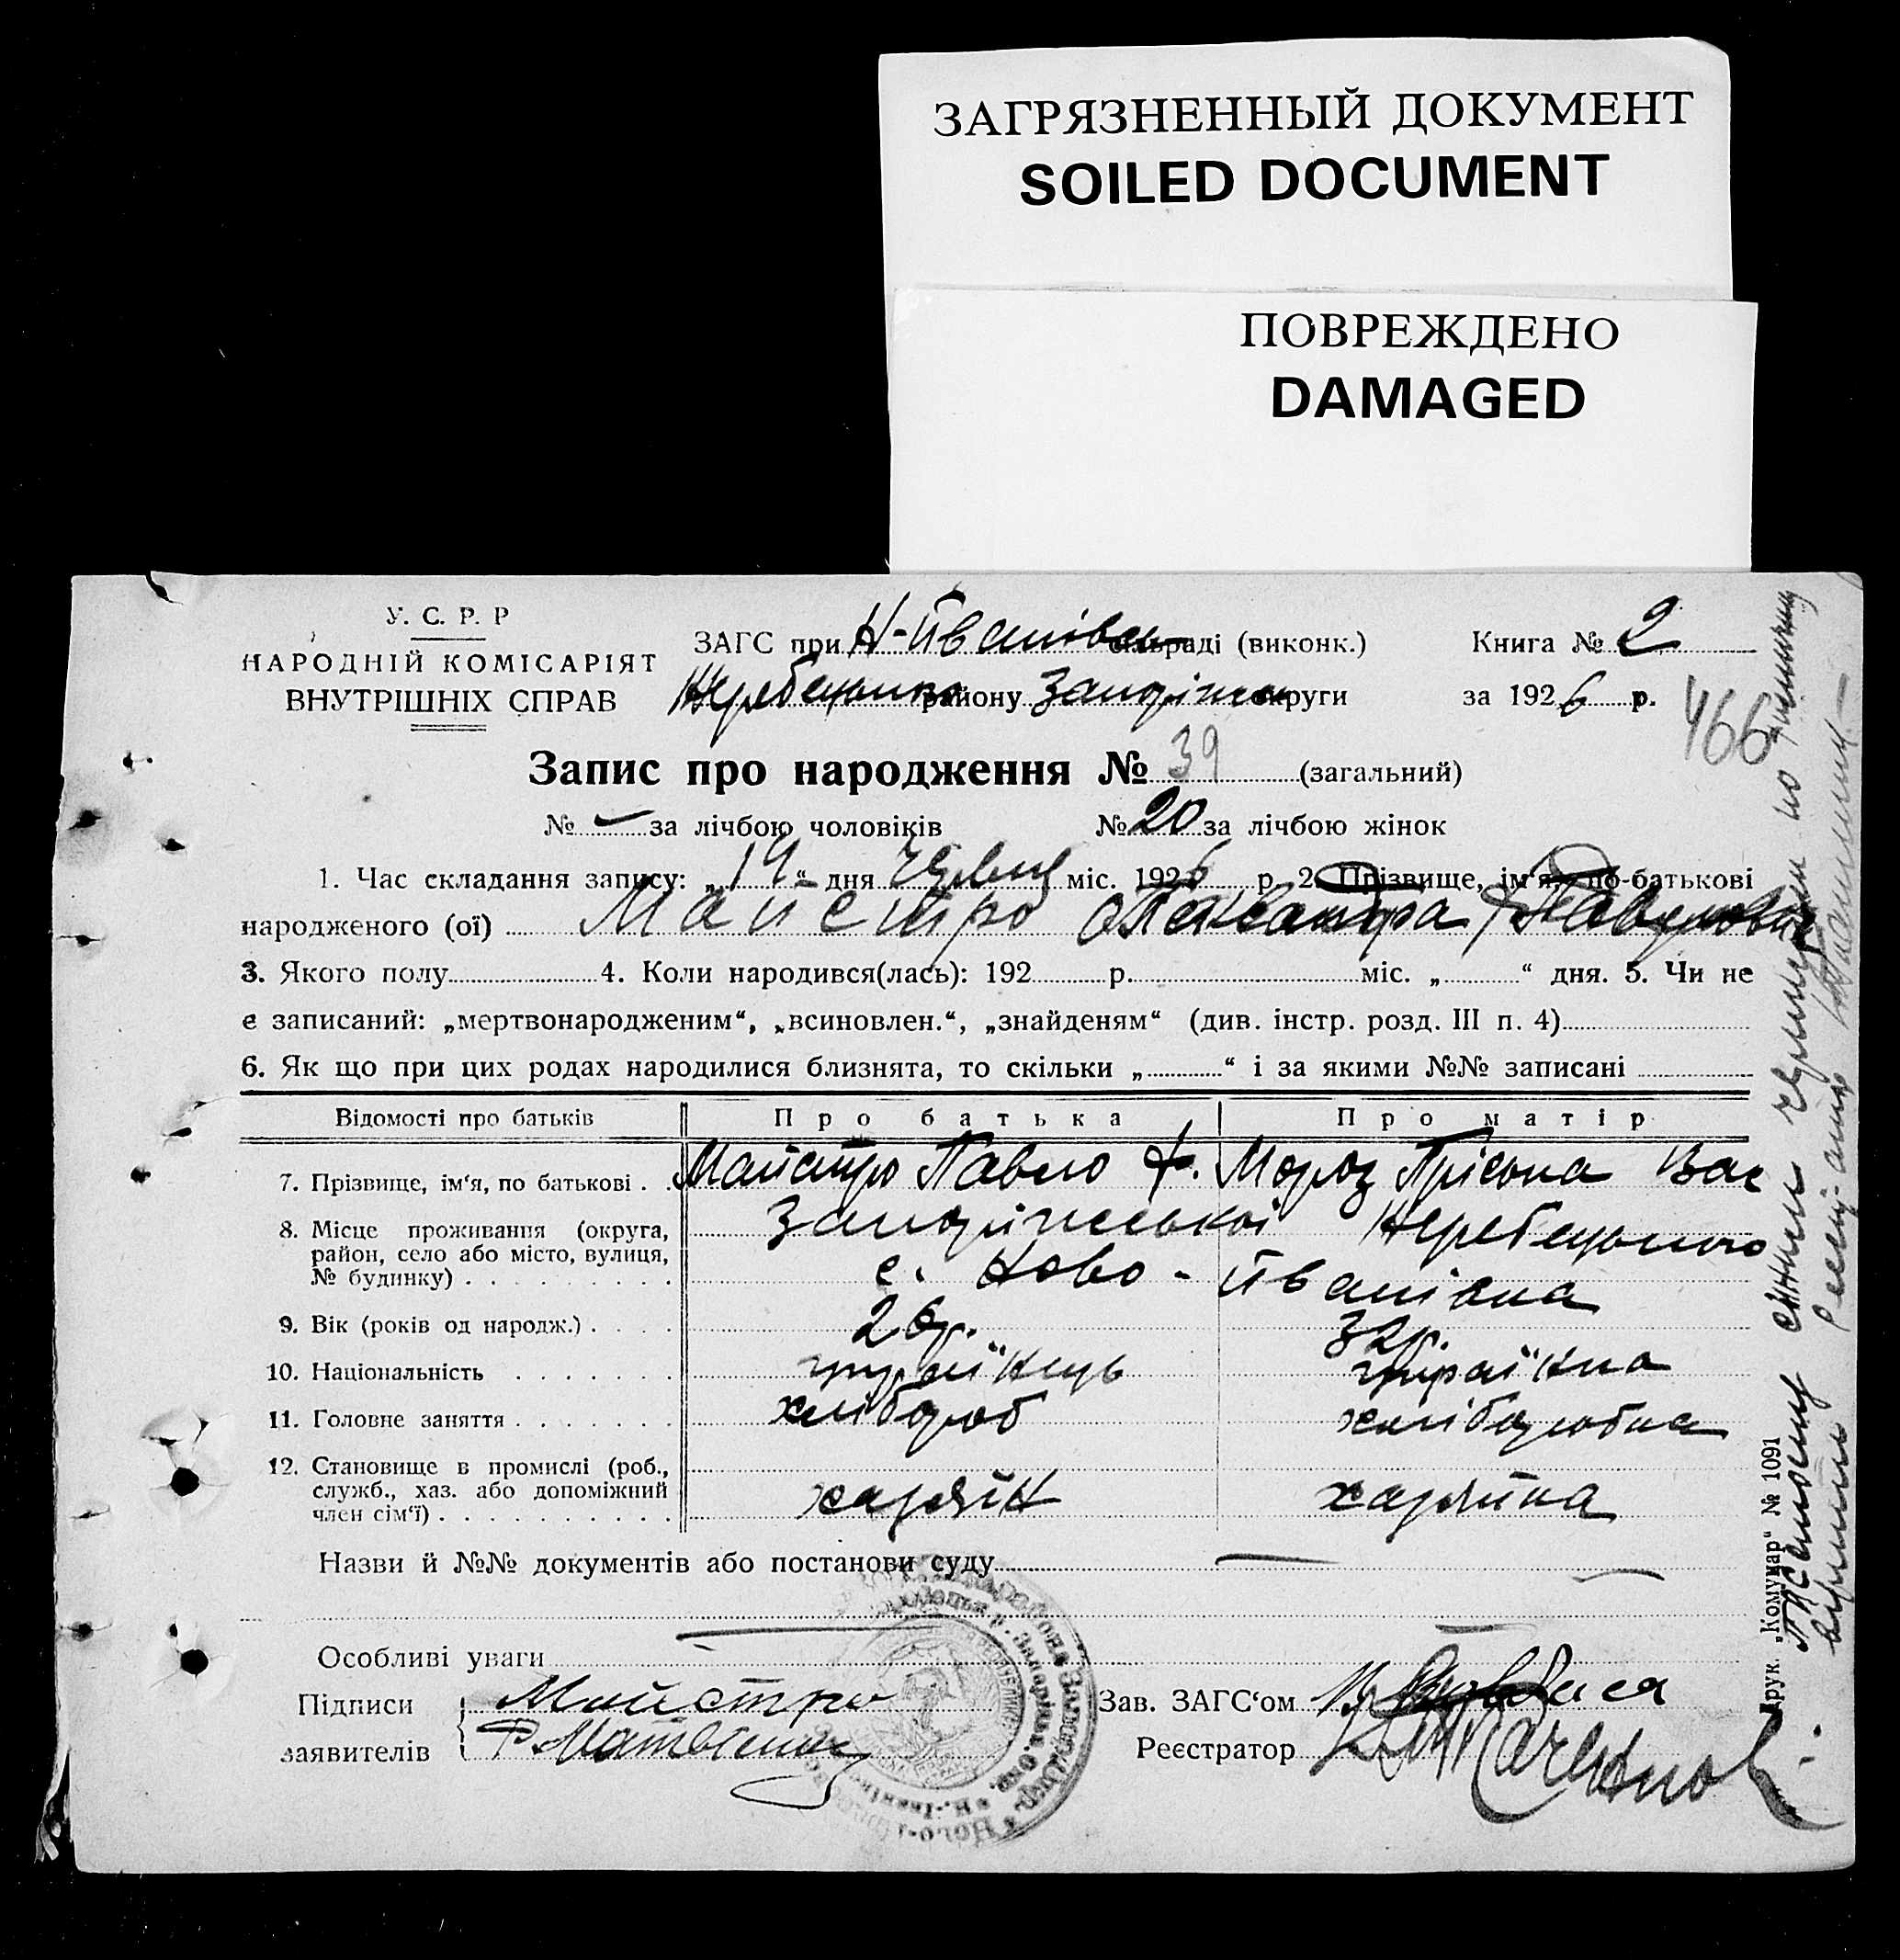 ЗАГРЯЗНЕННЫЙ ДОКУМЕНТ
SOILED DOCUMENT
ПОВРЕЖДЕНО
DAMAGED
У. С. Р. Р
НАРОДНІЙ КОМІСАРІЯТ
ВНУТРІШНІХ СПРАВ
ЗАГС при Н-Йванівсь сільраді (виконк.)
Жеребецького району Запоріжж округи
Книга № 2
за 1926 р.
466
Запис про народження № 39 (загальний)
№ — за лічбою чоловіків № 20 за лічбою жінок
1. Час складання запису: „19“ дня червця міс. 1926 р. 2. Прізвище, ім‘я, по-батькові
народженого (ої) Майстро Олександра Павловна
3. Якого полу 4. Коли народився(лась): 192 р. міс. „ “ дня. 5. Чи не
є записаний: „мертвонародженим“, „всиновлен.“, „знайденям“ (див. інстр. розд. III п. 4)
6. Як що при цих родах народилися близнята, то скільки „ “ і за якими №№ записані
Відомості про батьків Про батька Про матір
7. Прізвище, ім‘я, по батькові . . Майстро Павло Мороз Пріська Вас
8. Місце проживання (округа, район, село або місто, вулиця, № будинку) . Запоріжської Жеребецького
с. Ново-Йванівка
9. Вік (років од народж.) . . . . 26р. 32р.
10. Національність . . . . . . . україкець україкка
11. Головне заняття . . . . . . . хлібороб хліборобка
12. Становище в промислі (роб., служб., хаз. або допоміжний член сім‘ї) . хазяїн хазяйка
Назви й №№ документів або постанови суду —
Особливі уваги
Підписи заявителів { Майстро
Зав. ЗАГС‘ом
Реєстратор
Друк. „Комунар“ № 1091